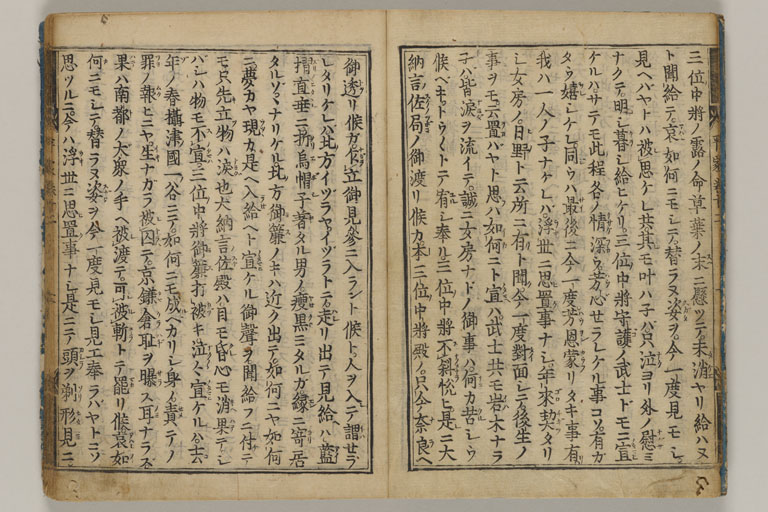 三位中將ノ露ノ命草葉ノ末ニ懸ツテ未消ヤリ給ハヌ
ト聞給テ哀如何ニモシテ替ラヌ姿ヲ今一度見モシ
見ヘバヤトハ被思ケレ共其モ叶ハ子バ只泣ヨリ外ノ慰ミ
ナクテ明シ暮シ給ヒケリ三位中將守護ノ武士ドモニ宣
ケルハサテモ此程各ノ情深ウ芳心セラレケル事コソ有ガ
タウ嬉シケレ同ウハ最後ニ今一度芳恩蒙リタキ事有
我ハ一人ノ子ナケレバ浮世ニ思置事ナシ年來契タリ
シ女房ノ日野ト云所ニ有ト聞今一度對面シテ後生ノ
事ヲモ云置バヤト思ハ如何ニト宣ハ武士共モ岩木ナラ
子ハ皆涙ヲ流イテ誠ニ女房ナドノ御事ハ何カ苦シウ
候ベキトウ〳〵トテ奉ル三位中將不斜悦ヒ是ニ大
納言ノ佐局ノ御渡リ候カ本三位中將殿ノ只今奈良ヘ
御透リ候ガ立御見參ニ入ラント候ト人ヲ入テ謂セラ
レタリケレバ北方イヅラヤイヅラトテ走リ出テ見給ハ藍
摺直垂ニ折烏帽子著タル男ノ瘦黒ミタルガ緣ニ寄居
タルソナリケル北方御簾ノキハ近ク出テ如何ニヤ如何
ニ夢カヤ現カ是ヘ入給ヘト宣ケル御聲ヲ聞給フニ付テ
モ只先立物ハ涙也大納言佐殿ハ目モ昏心モ消果テシ
バシハ物モ不宣三位中將御簾打被キ泣々宣ケルハ去
年ノ春攝津國一谷ニテ如何ニモ成ベカリシ身ノ責テノ
罪ノ報ヒニヤ生ナガラ被囚テ京鎌倉恥ヲ曝ス耳ナラズ
果ハ南都ノ大衆ノ手ヘ被渡テ可被斬トテ罷リ候哀如
何ニモシテ替ラヌ姿ヲ今一度見モシ見エ奉ラバヤトコソ
思ツルニ今ハ浮世ニ思置事ナシ是ニテ頭ヲ剃形見ニ